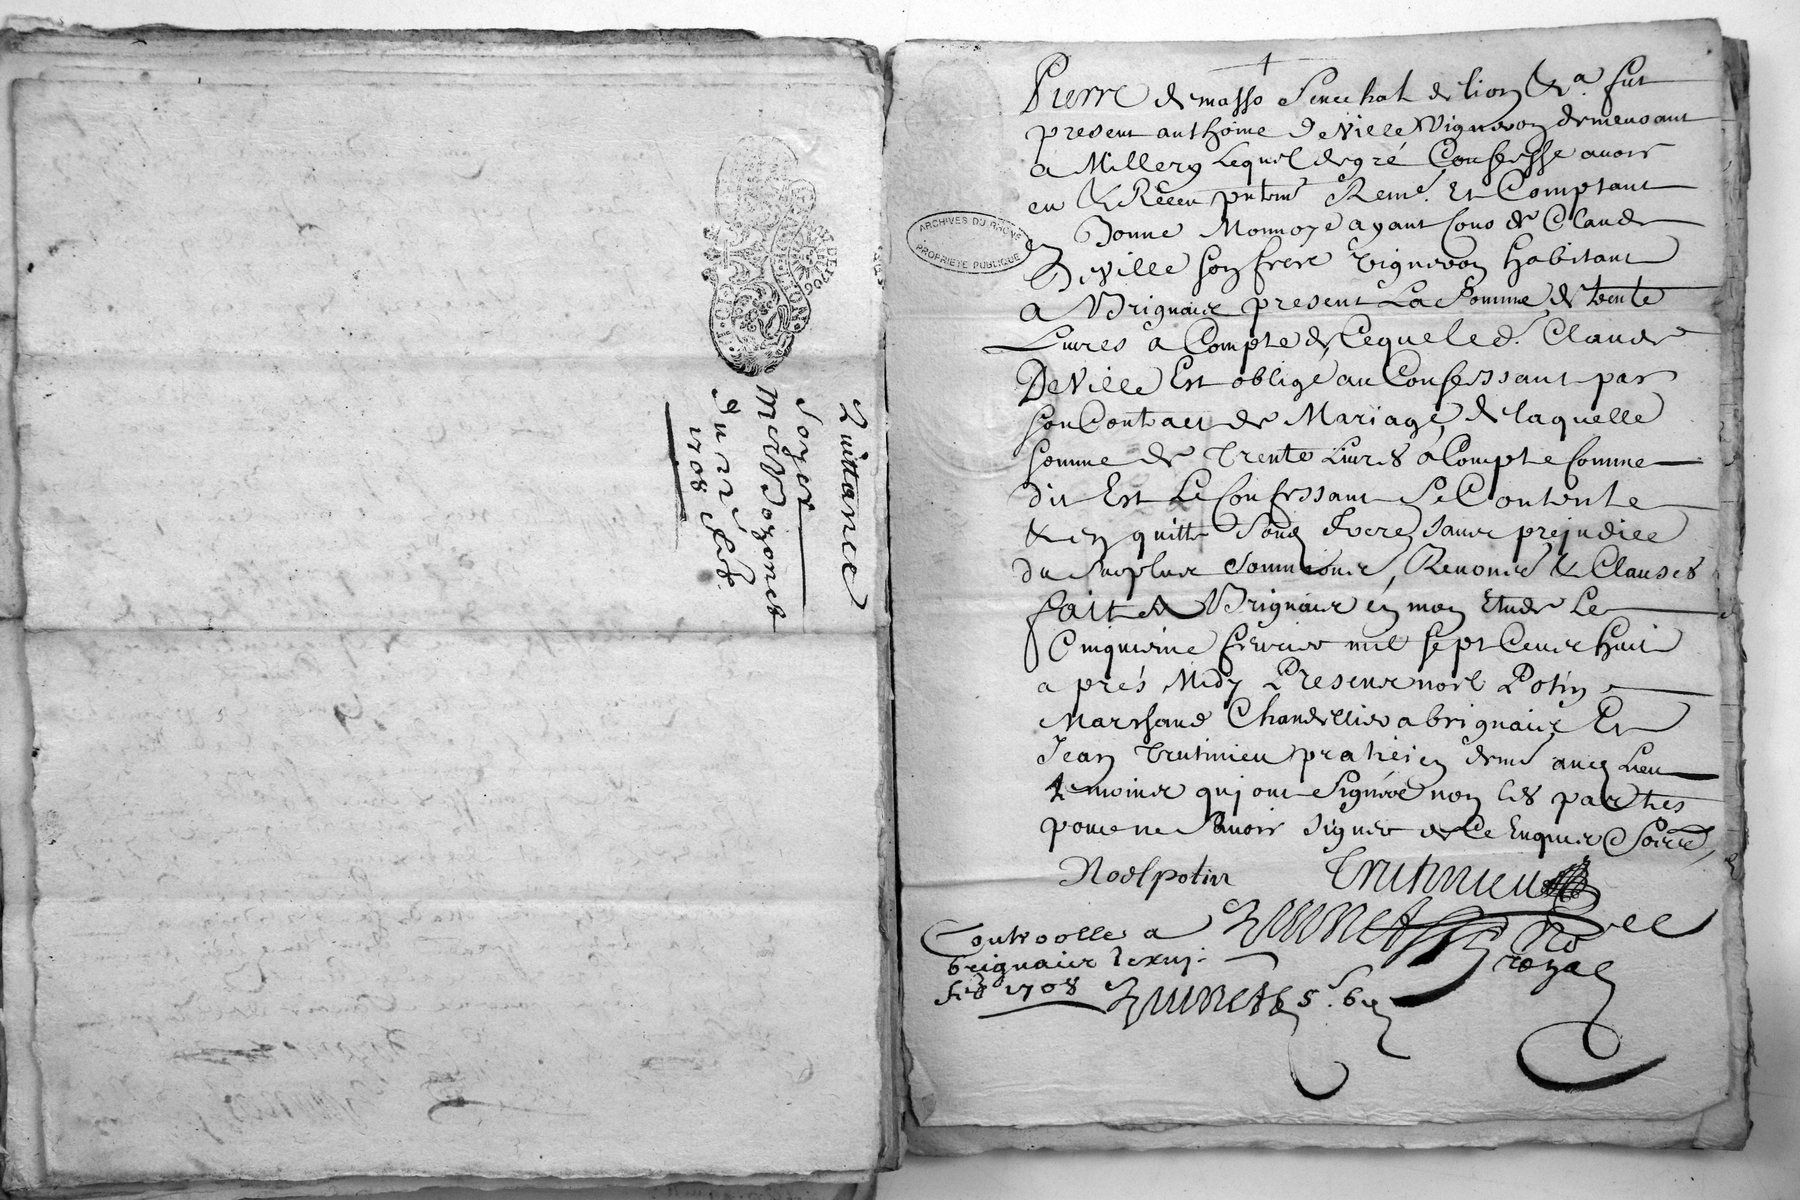 Quittance
Soyer
Mer Bozonet
Du 5 feb.
1708
ARCHIVES DU RHÔNE
PROPRIÉTÉ PUBLIQUE
Pierre de masso Senechal de lion &a. fut
present anthoine Deville Vigneron demeurant
a Millery Lequel de gré Confesse avoir
eu & Receu Et Comptant
en Bonne Monnoye ayant Cours de Claude
Deville son frere vigneron habitant
a Brignais present La Somme de trente
Livres a Compte de Ceque led. Claude
DeVille Est obligé au Confessant par
son Contract de Mariage, de laquelle
somme de Trente Livres a Compte Comme
dit Est Le Confessant Se Contente
& en quitte Sond frere, sans prejudice
du Surplus Renoncs & Clauses
fait A Brignais en mon Etude Le
Cinquieme fevrier mil sept Cens huit
a prés Midy Presens noel Potin
Marchand Chandellier a brignais Et
Jean Trutinieu praticien aud Lieu
temoins qui ont Signés non les parties
pour ne Savoir Signer de Ce Enquis
Noel potin Trutinieu
Controolle a
brignais le xvi
feb 1708
No
royal